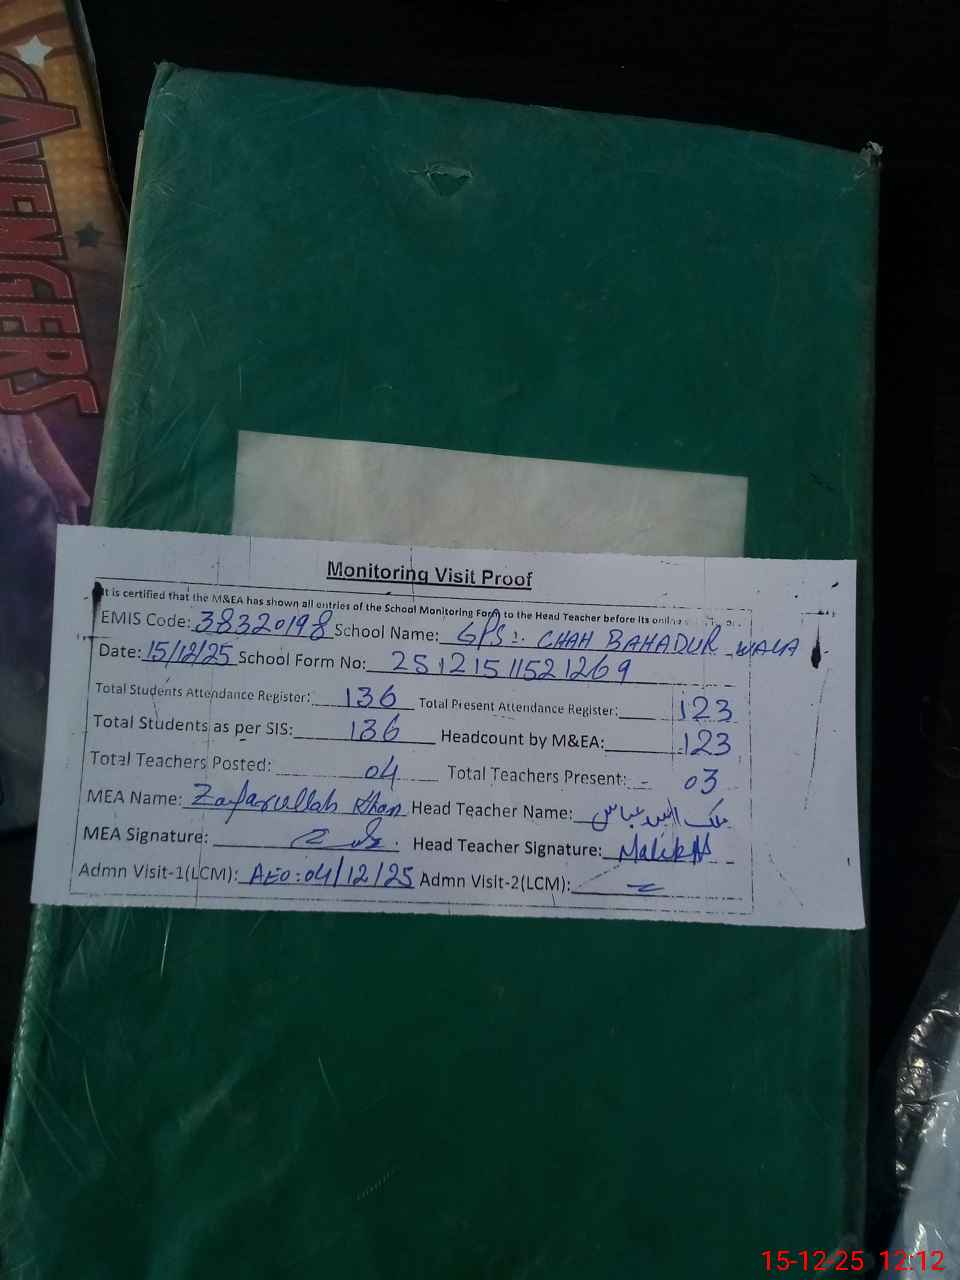 AVENGERS
Monitoring Visit Proof
It is certified that the M&EA has shown all entries of the School Monitoring Form to the Head Teacher before its online
EMIS Code: 38320198 School Name: GPS: CHAH BAHADUR WALA
Date: 15/12/25 School Form No: 2512151521269
Total Students Attendance Register: 136 Total Present Attendance Register: 123
Total Students as per SIS: 136 Headcount by M&EA: 123
Total Teachers Posted: 04 Total Teachers Present: 03
MEA Name: Zafarullah Khan Head Teacher Name: ملک عباس
MEA Signature: Head Teacher Signature: Malik
Admn Visit-1(LCM): AEO: 04/12/25 Admn Visit-2(LCM):
15-12-25 12:12